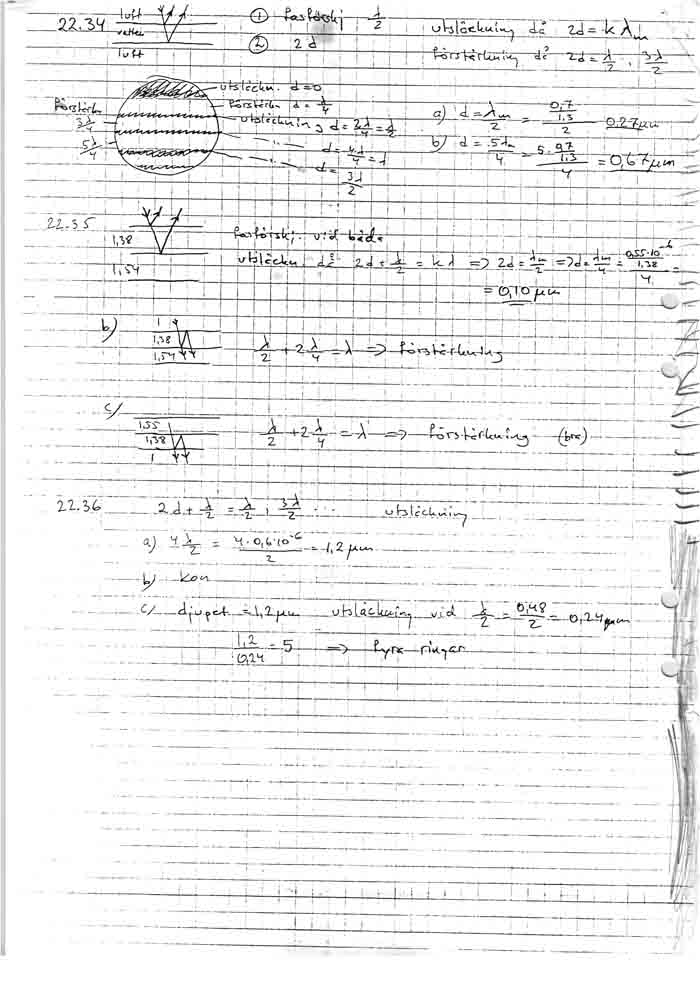 22.34
luft
vatten
luft
① fasförskj λ/2
② 2d
utsläckning då 2d = k λm
förstärkning då 2d = λ/2, 3λ/2
utsläckn. d=0
förstärkn d = λ/4
utsläckning d = 2λ/4 = λ/2
d = 4λ/4 = λ
d = 3λ/2
förstärkn
3λ/4
5λ/4
a) d = λm/2 = (0,7/1,3)/2 0,27 μm
b) d = 5λm/4 = = 0,67 μm
22.35
1,38
1,54
fasförskj. vid båda
utsläckn. då 2d + = k λ => 2d = λm/2 => d = λm/4 = (0,55·10^-6/1,38)/4 =
= 0,10 μm
b)
1
1,38
1,54
λ/2 + 2 λ/4 = λ => förstärkning
c/
1,55
1,38
1
λ/2 + 2 λ/4 = λ => förstärkning (bra)
22.36 2d + λ/2 = λ/2, 3λ/2 ... utsläckning
a) 4 λ/2 = 4·0,6·10^-6/2 = 1,2 μm
b) kon
c/ djupet = 1,2 μm utsläckning vid λ/2 = 0,48/2 = 0,24 μm
1,2/0,24 = 5 => fyra ringar